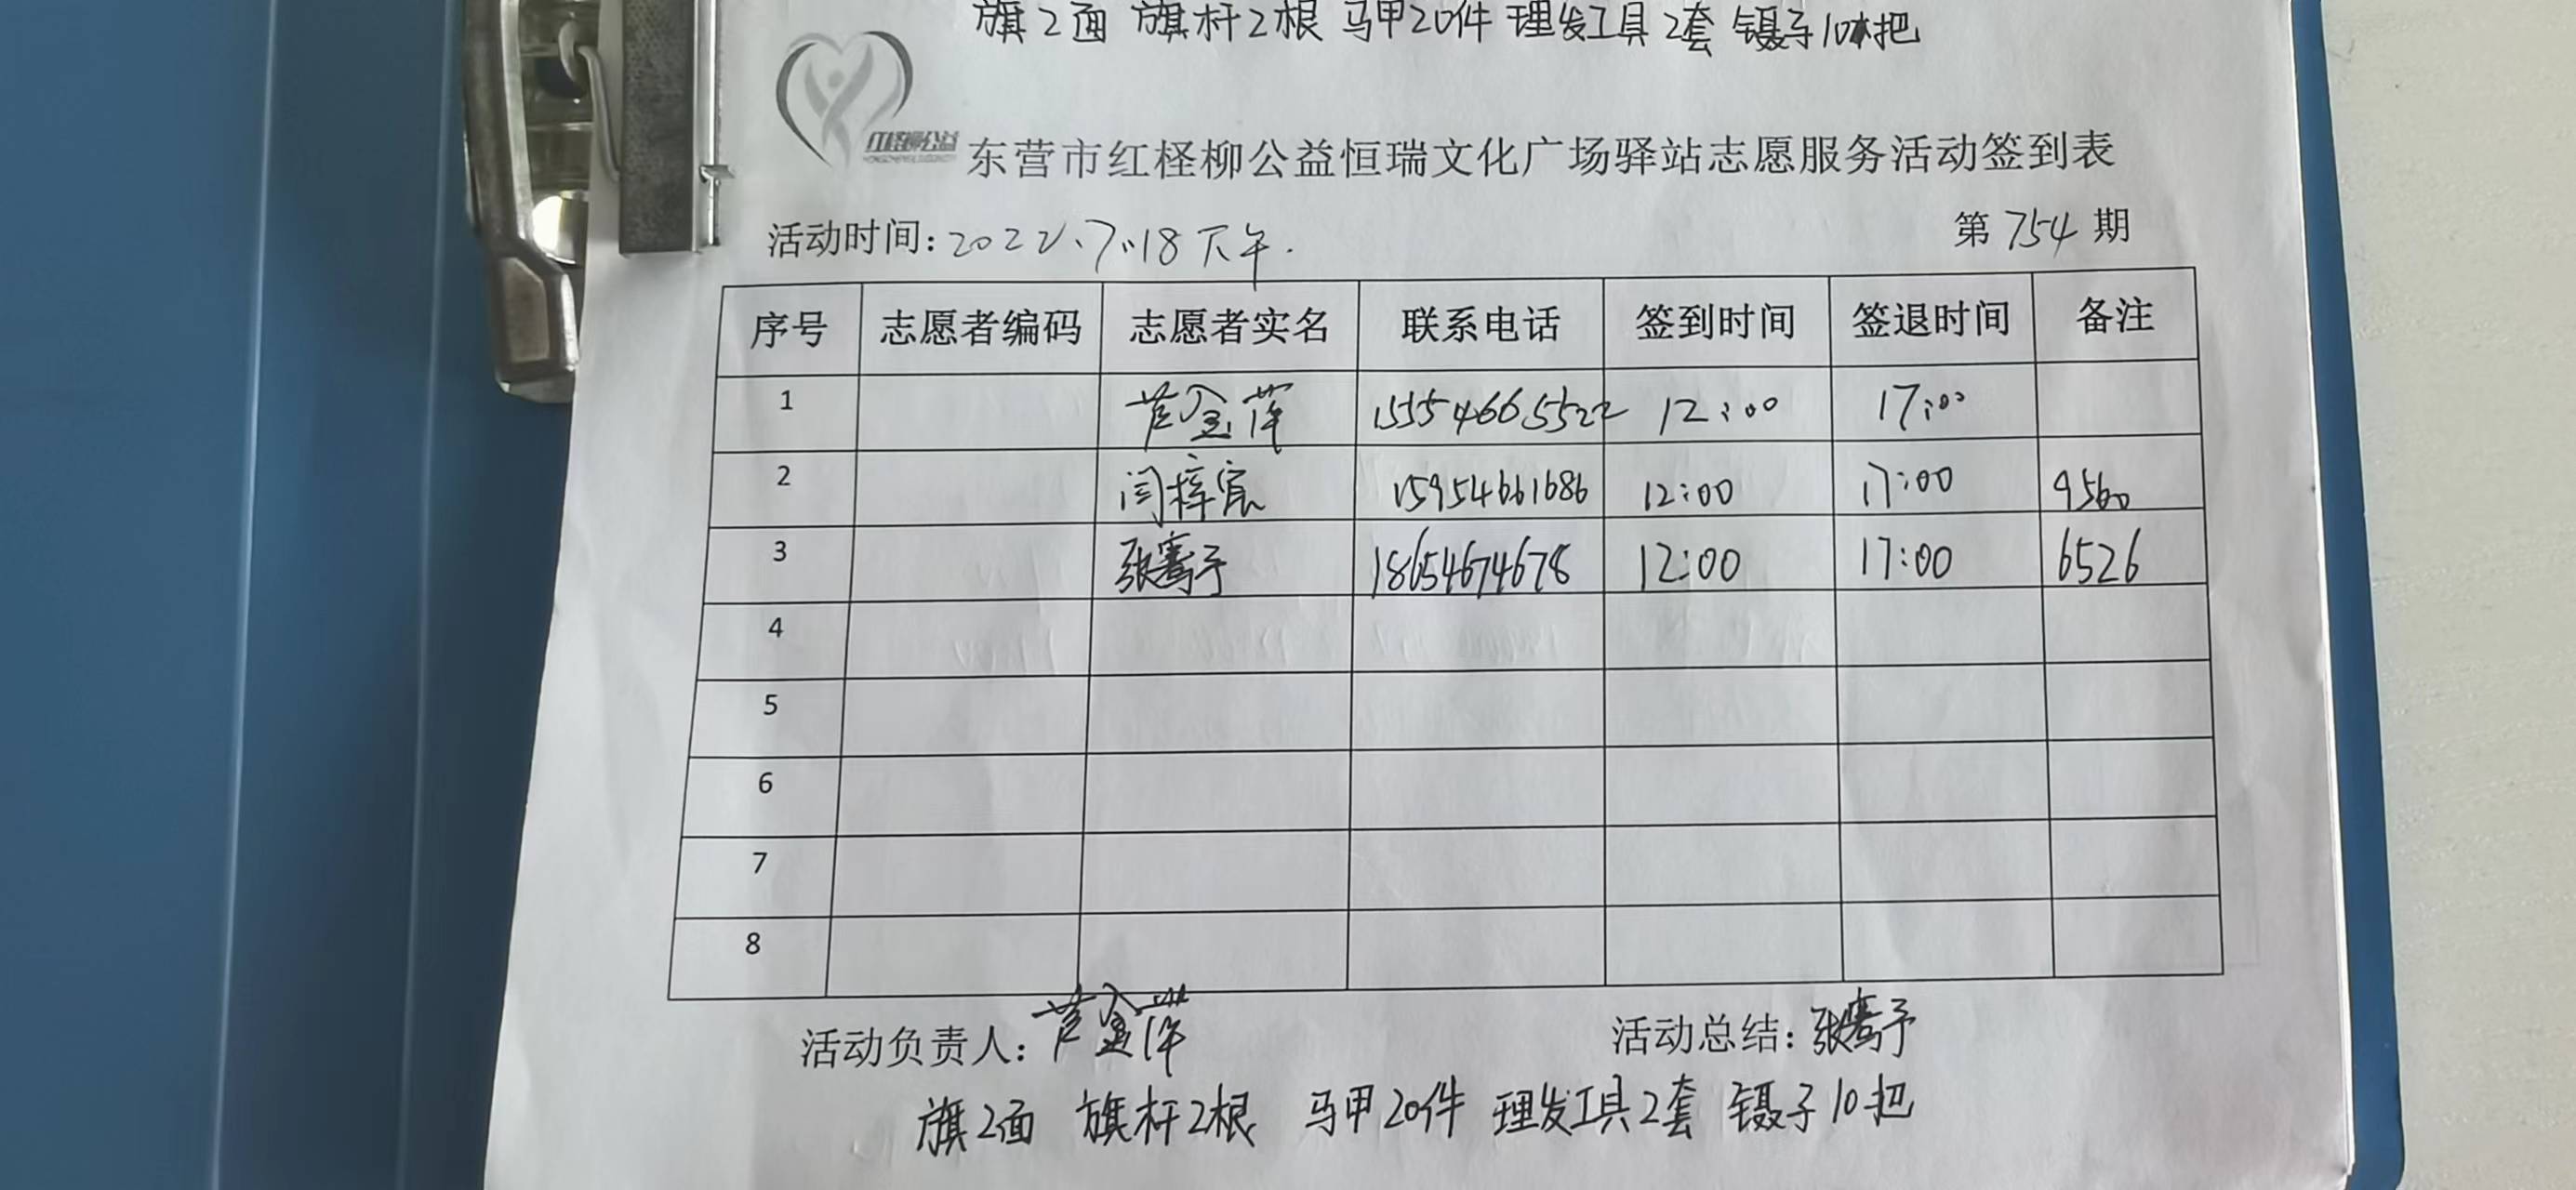 旗2面 旗杆2根 马甲20件 理发工具2套 镊子10把
红柽柳公益
东营市红柽柳公益恒瑞文化广场驿站志愿服务活动签到表
活动时间：2022、7、18下午. 第754期
序号 志愿者编码 志愿者实名 联系电话 签到时间 签退时间 备注
1 芦金萍 15554665522 12:00 17:00
2 闫梓宸 15954661686 12:00 17:00 9560
3 张骞予 18654674678 12:00 17:00 6526
4
5
6
7
8
活动负责人：芦金萍 活动总结：张骞予
旗2面 旗杆2根 马甲20件 理发工具2套 镊子10把